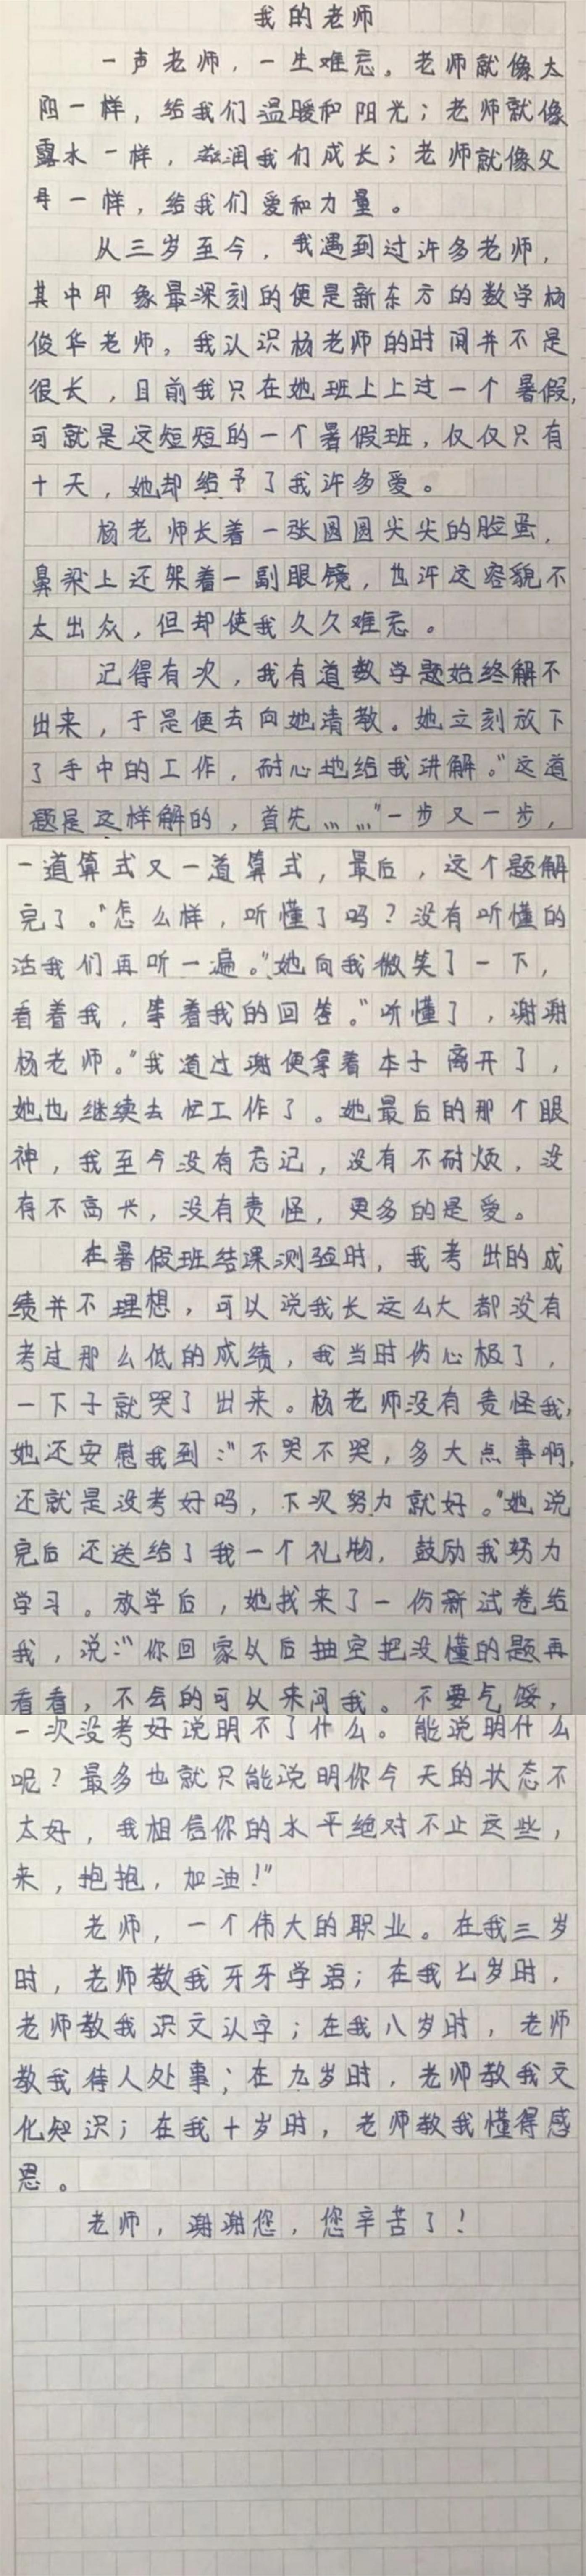 我的老师
一声老师，一生难忘。老师就像太
阳一样，给我们温暖和阳光；老师就像
露水一样，滋润我们成长；老师就像父
母一样，给我们爱和力量。
从三岁至今，我遇到过许多老师，
其中印象最深刻的便是新东方的数学杨
俊华老师。我认识杨老师的时间并不是
很长，目前我只在她班上上过一个暑假，
可就是这短短的一个暑假班，仅仅只有
十天，她却给予了我许多爱。
杨老师长着一张圆圆尖尖的脸蛋，
鼻梁上还架着一副眼镜，也许这容貌不
太出众，但却使我久久难忘。
记得有次，我有道数学题始终解不
出来，于是便去向她请教。她立刻放下
了手中的工作，耐心地给我讲解。“这道
题是这样解的，首先……”一步又一步，
一道算式又一道算式，最后，这个题解
完了。“怎么样，听懂了吗？没有听懂的
话我们再听一遍。”她向我微笑了一下，
看着我，等着我的回答。“听懂了，谢谢
杨老师。”我道过谢便拿着本子离开了，
她也继续去忙工作了。她最后的那个眼
神，我至今没有忘记，没有不耐烦，没
有不高兴，没有责怪，更多的是爱。
在暑假班结课测验时，我考出的成
绩并不理想，可以说我长这么大都没有
考过那么低的成绩，我当时伤心极了，
一下子就哭了出来。杨老师没有责怪我，
她还安慰我到：“不哭不哭，多大点事啊，
还就是没考好吗，下次努力就好。”她说
完后还送给了我一个礼物，鼓励我努力
学习。放学后，她找来了一份新试卷给
我，说：“你回家以后抽空把没懂的题再
看看，不会的可以来问我。不要气馁，
一次没考好说明不了什么。能说明什么
呢？最多也就只能说明你今天的状态不
太好，我相信你的水平绝对不止这些，
来，抱抱，加油！”
老师，一个伟大的职业。在我三岁
时，老师教我牙牙学语；在我七岁时，
老师教我识文认字；在我八岁时，老师
教我待人处事；在九岁时，老师教我文
化知识；在我十岁时，老师教我懂得感
恩。
老师，谢谢您，您辛苦了！